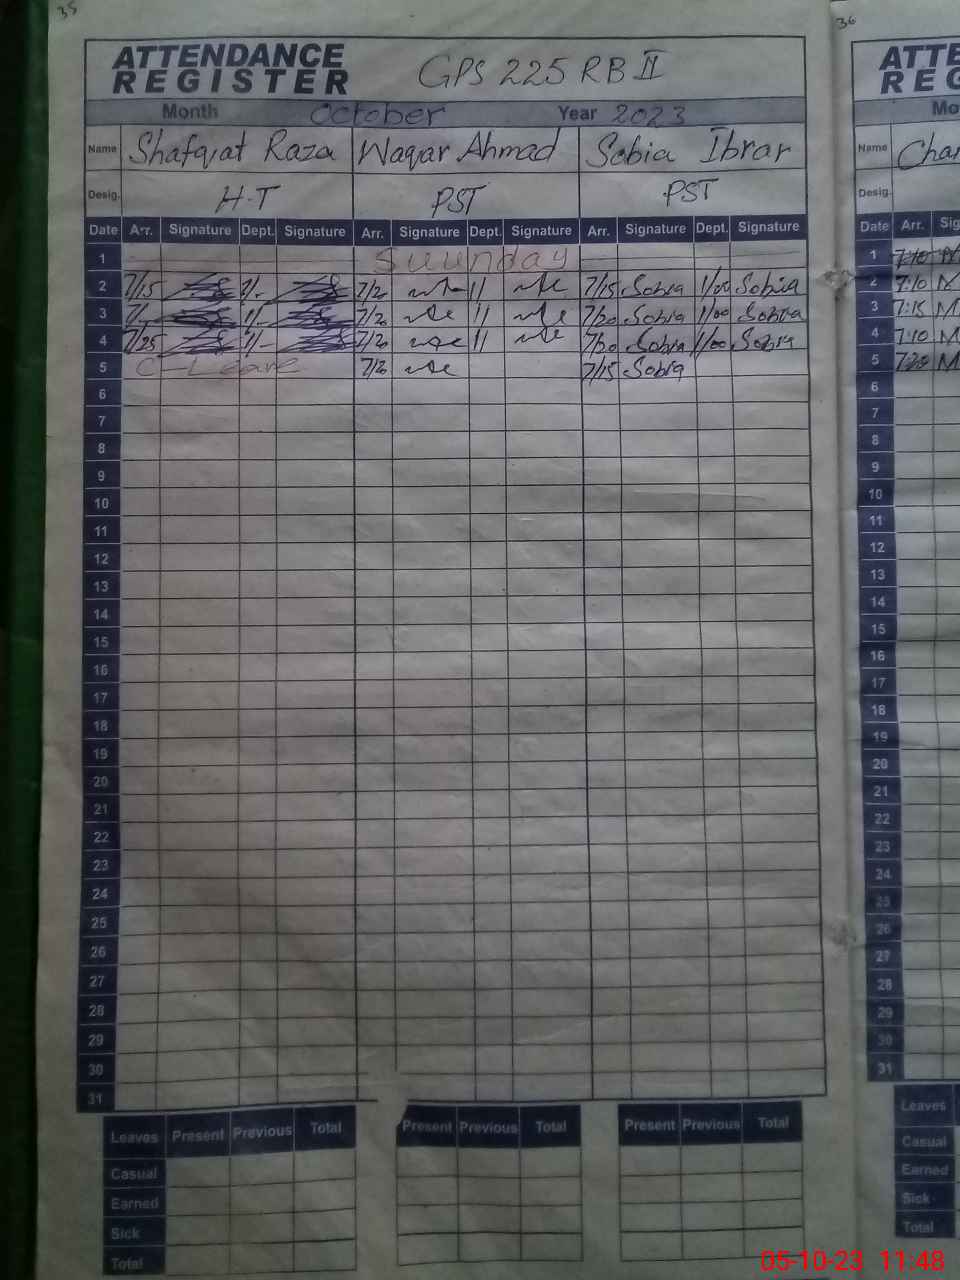 35
36
ATTENDANCE REGISTER GPS 225 RB II
Month October Year 2023
Name Shafqat Raza Waqar Ahmad Sobia Ibrar
Desig. H-T PST PST
Date Arr. Signature Dept. Signature Arr. Signature Dept. Signature Arr. Signature Dept. Signature
1 Suunday
2 7/15 1/- 7/20 11 7/15 Sobia 1/00 Sobia
3 7/- 1/- 7/20 11 7/20 Sobia 1/00 Sobia
4 7/25 1/- 7/20 11 7/20 Sobia 1/00 Sobia
5 C-Leave 7/20 7/15 Sobia
6
7
8
9
10
11
12
13
14
15
16
17
18
19
20
21
22
23
24
25
26
27
28
29
30
31
Leaves Present Previous Total Present Previous Total Present Previous Total
Casual
Earned
Sick
Total
ATTE
REG
Mo
Name Char
Desig.
Date Arr. Sig
1 7:10 M
2 7:10 M
3 7:15 M
4 7:10 M
5 7:20 M
6
7
8
9
10
11
12
13
14
15
16
17
18
19
20
21
22
23
24
25
26
27
28
29
30
31
Leaves
Casual
Earned
Sick
Total
05-10-23 11:48